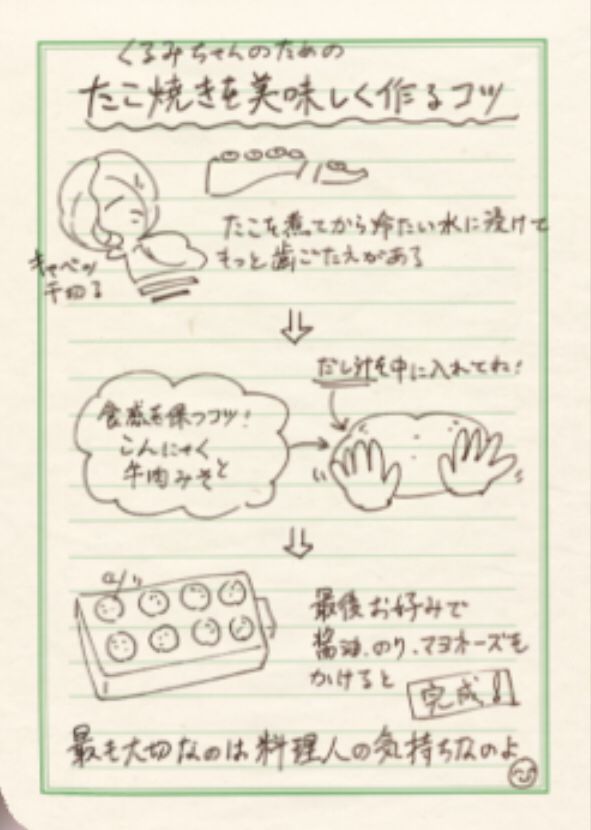 くるみちゃんのための
たこ焼きを美味しく作るコツ
たこを煮てから冷たい水に浸けて
もっと歯ごたえがある
キャベツ
千切る
だし汁を中に入れてね!
食感を保つコツ!
こんにゃく
牛肉みそと
最後お好みで
醤油、のり、マヨネーズも
かけると
完成!!
最も大切なのは料理人の気持ちなのよ